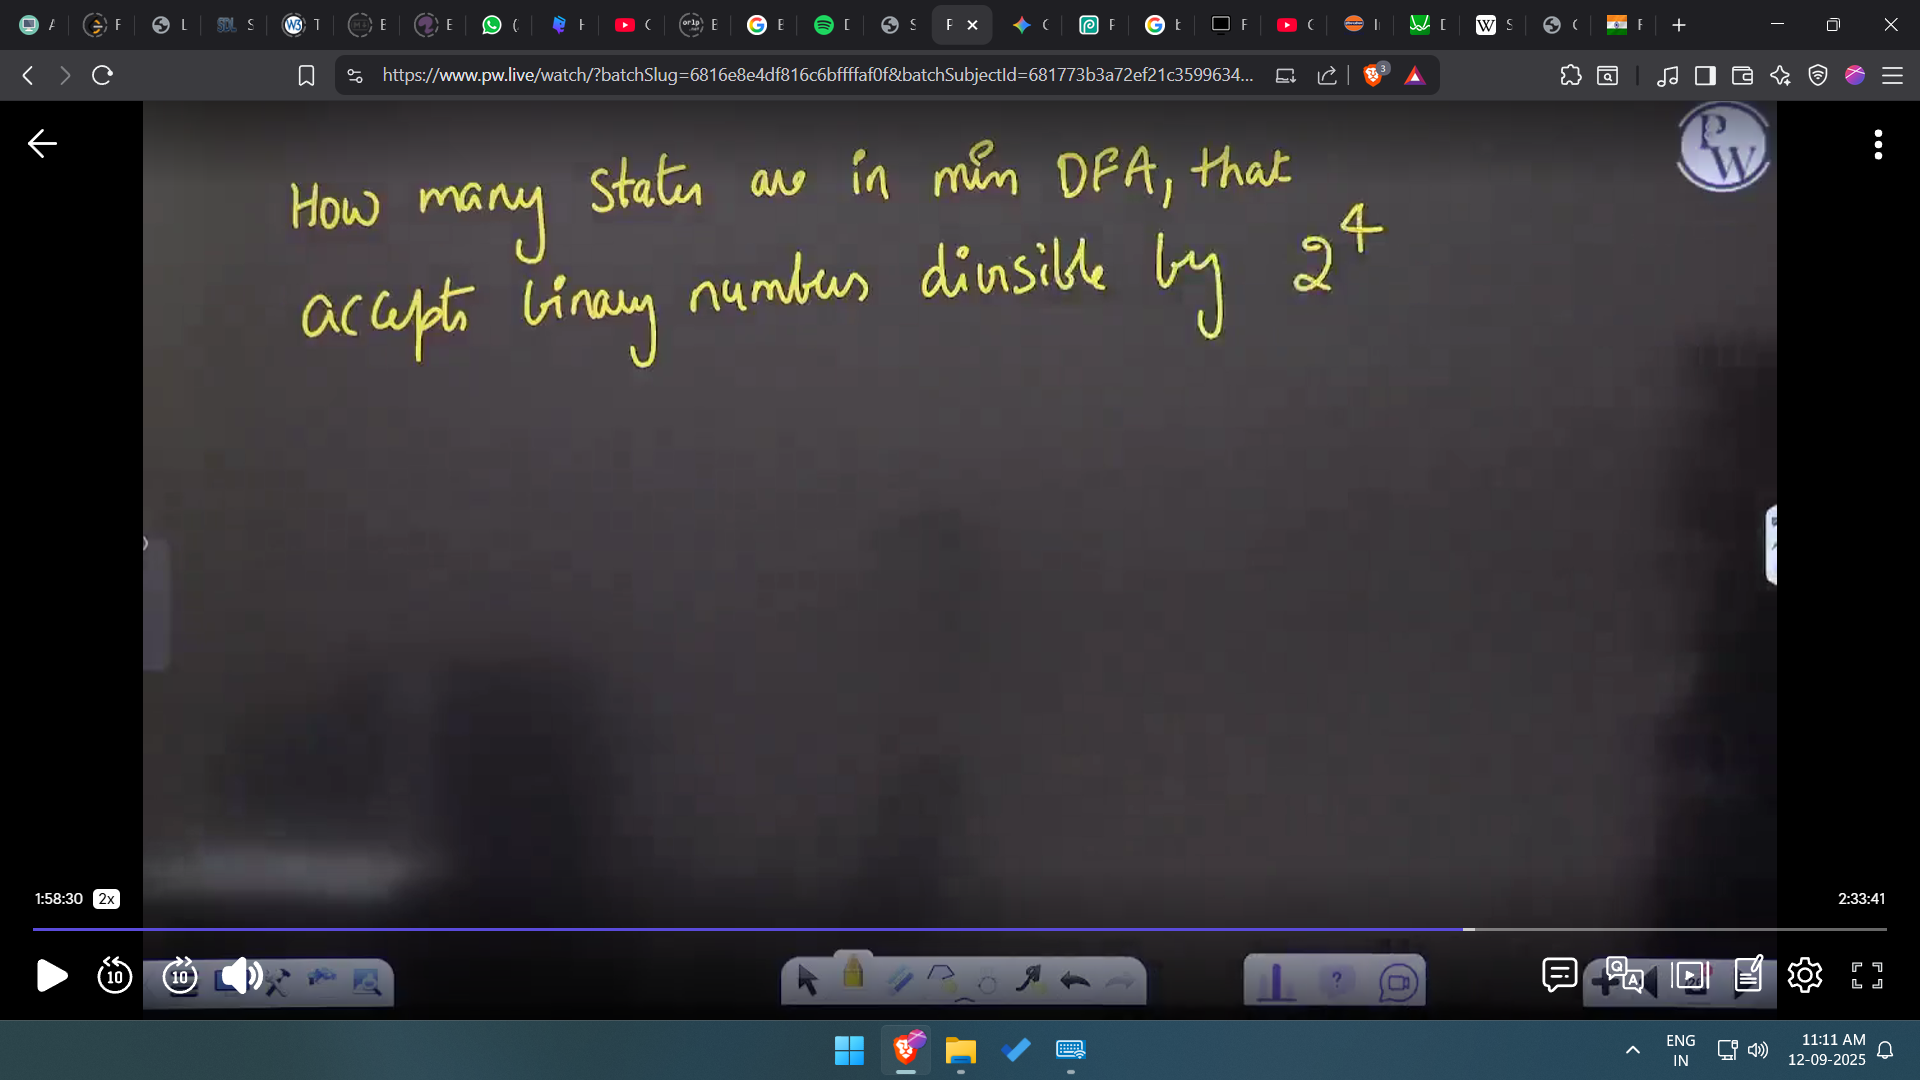 A
F
L
S
T
E
E
(
H
C
E
E
D
S
F
C
F
b
F
C
I
D
S
C
F
https://www.pw.live/watch/?batchSlug=6816e8e4df816c6bffffaf0f&batchSubjectId=681773b3a72ef21c3599634...
3
PW
How many states are in min DFA, that
accepts binary numbers divisible by 2^4
1:58:30 2x
2:33:41
10
10
ENG
IN
11:11 AM
12-09-2025